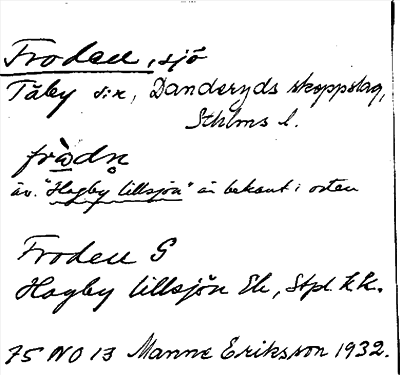 Froden, sjö
Täby s:n, Danderyds skeppslag,
Sthlms l.
frὰdn̥
äv. "Hagby lillsjön" är bekant i orten
Froden G
Hagby lillsjön Ek, Stpl. k.k.
75 NO 13 Manne Eriksson 1932.